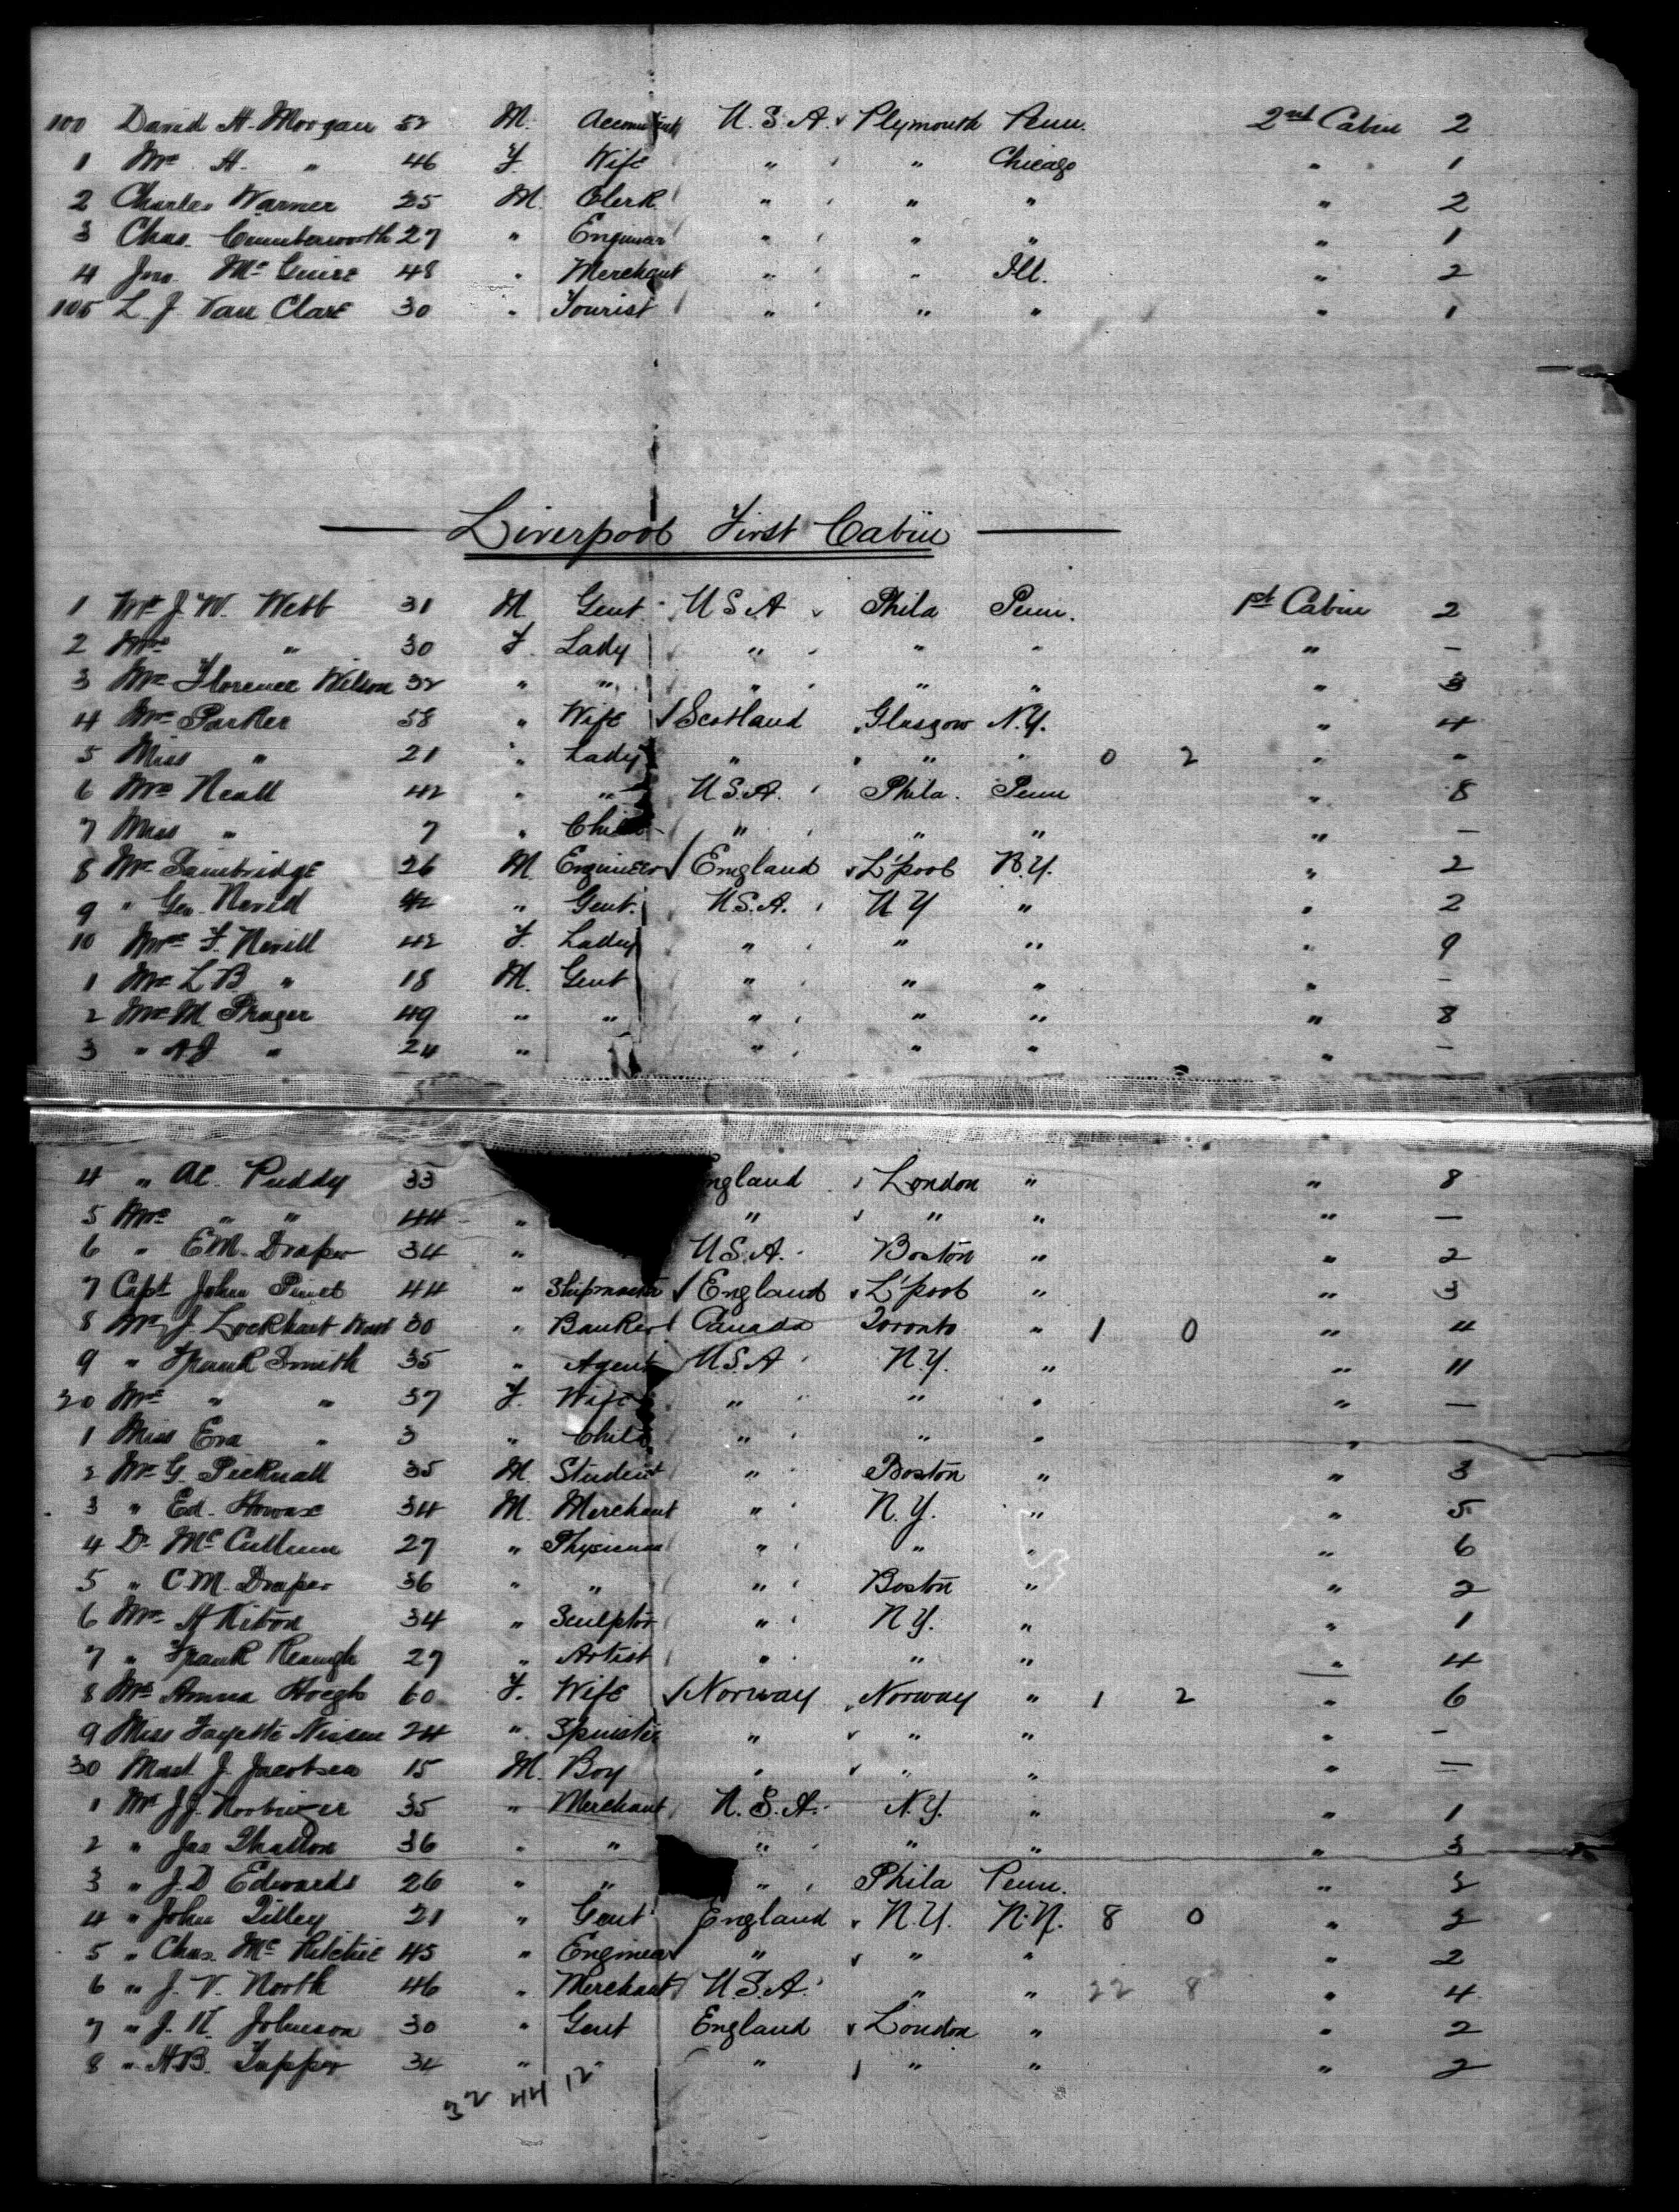 100 David H. Morgan 52 M. Account U.S.A. Plymouth Penn. 2nd Cabin 2
1 Mrs H. " 46 F. Wife " " Chicago " 1
2 Charles Warner 25 M. Clerk " " " " 2
3 Chas. Cumberworth 27 " Engineer " " " " 1
4 Jno. McGuire 48 " Merchant " " Ill. " 2
105 L. J. Van Clare 30 " Tourist " " " " 1
Liverpool First Cabin
1 Mr J. W. Webb 31 M Gent. U S A Phila Penn. 1st Cabin 2
2 Mrs " 30 F. Lady " " " " —
3 Mrs Florence Wilson 32 " " " " " " 3
4 Mrs Parker 58 " Wife Scotland Glasgow N.Y. " 4
5 Miss " 21 " Lady " " " 0 2 " "
6 Mrs Neall 42 " " U.S.A. Phila. Penn " 8
7 Miss " 7 " Child " " " " —
8 Mr Sambridge 26 M. Engineer England L'pool N.Y. " 2
9 " Geo. 42 " Gent. U.S.A. N Y " " 2
10 Mrs F. Nevill 42 F. Lady " " " " 9
1 Mr L B " 18 M. Gent " " " " —
2 Mr M Prager 49 " " " " " " 8
3 " A J " 24 " " " " " —
4 " Al. Puddy 33 ngland London " " 8
5 Mrs " " 44 " " " " " —
6 " E.M. Draper 34 " U.S.A. Boston " " 2
7 Capt John 44 " Shipmaster England L'pool " " 3
8 Mr J. Lockhart 30 " Banker Canada Toronto " 1 0 " 4
9 " Frank Smith 35 " Agent U.S.A N.Y. " " 11
20 Mrs " " 37 F. Wife " " " " —
1 Miss Eva " 3 " Child " " " " —
2 Mr G. Picknall 35 M. Student " Boston " " 3
3 " Ed. 34 M. Merchant " N.Y. " " 5
4 Dr McCullum 27 " Physician " " " " 6
5 " C.M. Draper 36 " " " Boston " " 2
6 Mr H Kitson 34 " Sculptor " N.Y. " " 1
7 " Frank Reaugh 27 " Artist " " " " 4
8 Mrs Anna Hoegh 60 F. Wife Norway Norway " 1 2 " 6
9 Miss Nissen 24 " Spinster " " " " —
30 Mast J. Jacobsen 15 M. Boy " " " " —
1 Mr J.J. 35 " Merchant U.S.A. N.Y. " " 1
2 " Jas 36 " " " " " " 3
3 " J.D Edwards 26 " " " Phila Penn. " 3
4 " John Tilley 21 " Gent England N.Y. N.Y. 8 0 " 2
5 " Chas. McRitchie 45 " Engineer " " " " 2
6 " J. V. North 46 " Merchant U.S.A. " " 22 8 " 4
7 " J. H. Johnson 30 " Gent England London " " 2
8 " H.B. Tupper 34 " " " " " 2
32 44 12